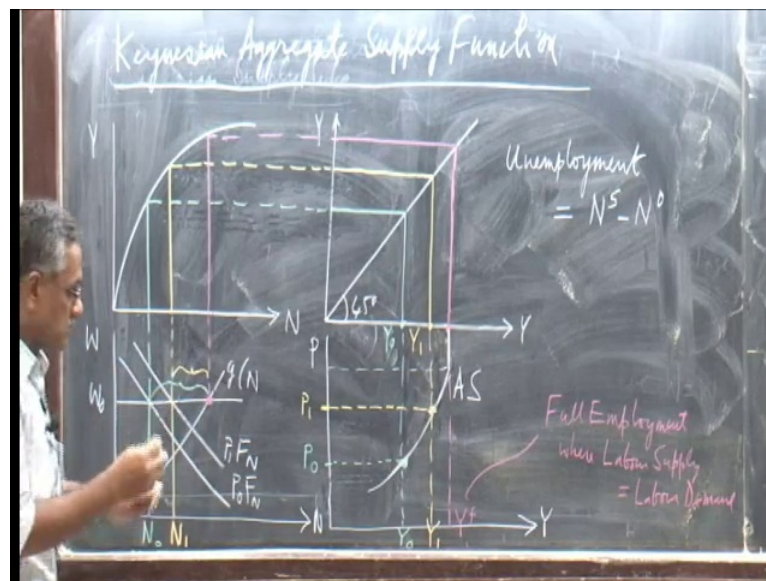 Keynesian Aggregate Supply Function
Y
N
Y
45°
Y₀ Y₁
Y
Unemployment
= Nˢ - Nᴰ
W
W₀
g(N
P₁F_N
P₀F_N
N₀ N₁
N
P
P₁
P₀
AS
Y₀ Y₁ Yf
Y
Full Employment
where Labour Supply
= Labour Demand